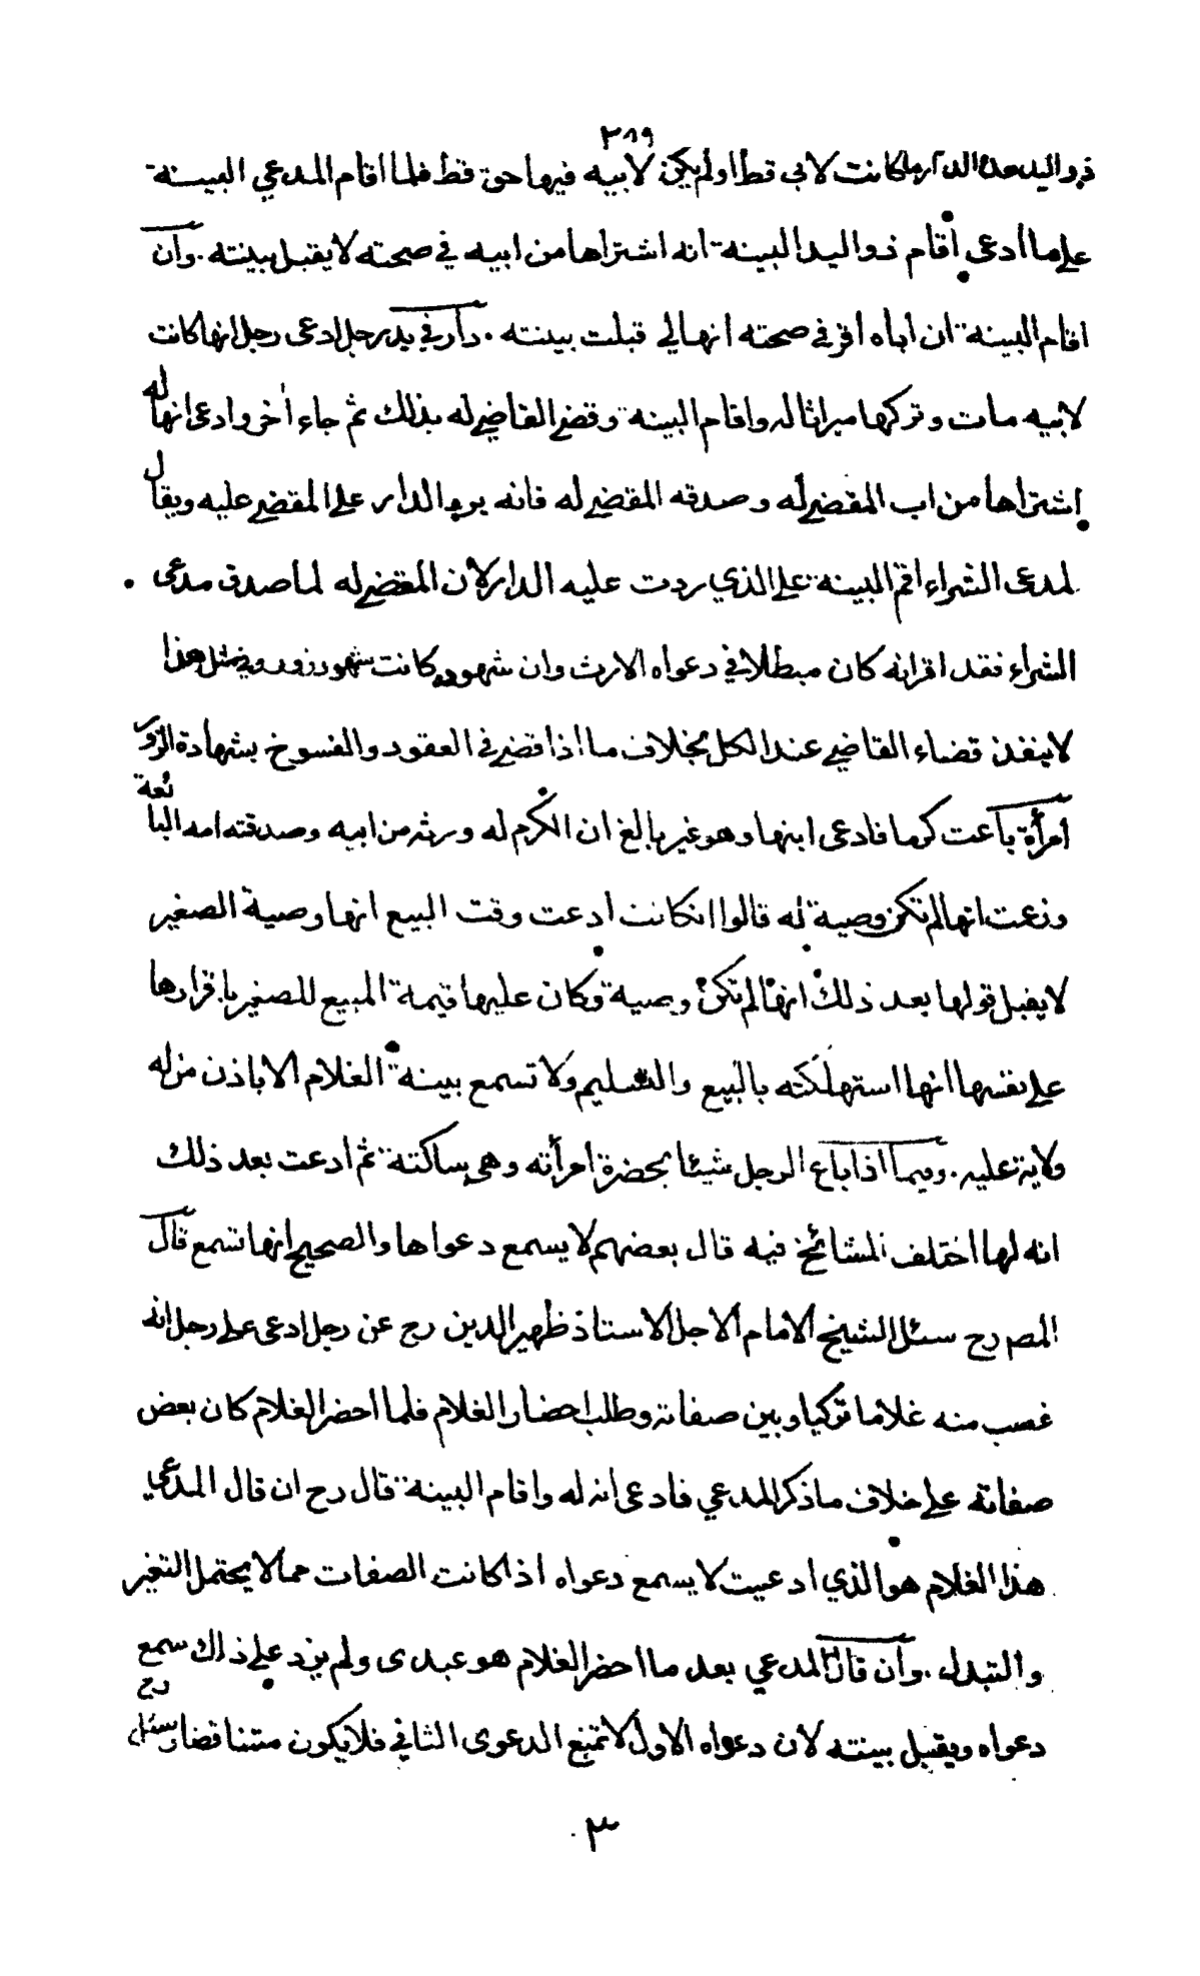 ٣٨٩
ذو اليد هذه الدار ما كانت لابي قط او لم يكن لابيه فيها حق قط فلما اقام المدعي البينة
على ما ادعى اقام ذو اليد البينة انه اشتراها من ابيه في صحته لا يقبل بينته . وان
اقام البينة ان اباه اقر في صحته انها لي قبلت بينته . دار في يد رجل ادعى رجل انها كانت
لابيه مات وتركها ميراثا له واقام البينة وقضى القاضي له بذلك ثم جاء آخر وادعى انها له
اشتراها من اب المقضي له وصدقه المقضي له فانه يرد الدار على المقضي عليه ويقال
لمدعى الشراء اقم البينة على الذي ردت عليه الدار لان المقضي له لما صدق مدعى
الشراء فقد اقر انه كان مبطلا في دعواه الارث وان شهوده كانت شهود زور وفي مثل هذا
لا ينفذ قضاء القاضي عند الكل بخلاف ما اذا قضى في العقود والفسوخ بشهادة الزور
امرأة باعت كرما فادعى ابنها وهو غير بالغ ان الكرم له ورثه من ابيه وصدقته امه البائعة
وزعمت انها لم تكن وصية له قالوا ان كانت ادعت وقت البيع انها وصية الصغير
لا يقبل قولها بعد ذلك انها لم تكن وصية وكان عليها قيمة المبيع للصغير باقرارها
على نفسها انها استهلكته بالبيع والتسليم ولا تسمع بينة الغلام الا باذن من له
ولاية عليه . وفيما اذا باع الرجل شيئا بحضرة امرأته وهي ساكتة ثم ادعت بعد ذلك
انه لها اختلف المشائخ فيه قال بعضهم لا يسمع دعواها والصحيح انها تسمع قال
المصم رح سئل الشيخ الامام الاجل الاستاذ ظهير الدين رح عن رجل ادعى على رجل انه
غصب منه غلاما تركيا وبين صفاته وطلب احضار الغلام فلما احضر الغلام كان بعض
صفاته على خلاف ما ذكر المدعي فادعى انه له واقام البينة قال رح ان قال المدعي
هذا الغلام هو الذي ادعيت لا يسمع دعواه اذا كانت الصفات مما لا يحتمل التغير
والتبدل . وان قال المدعي بعد ما احضر الغلام هو عبدى ولم يزد على ذلك سمع
دعواه ويقبل بينته لان دعواه الاول لا تمنع الدعوى الثاني فلا يكون متناقضا وسئل رح
٣